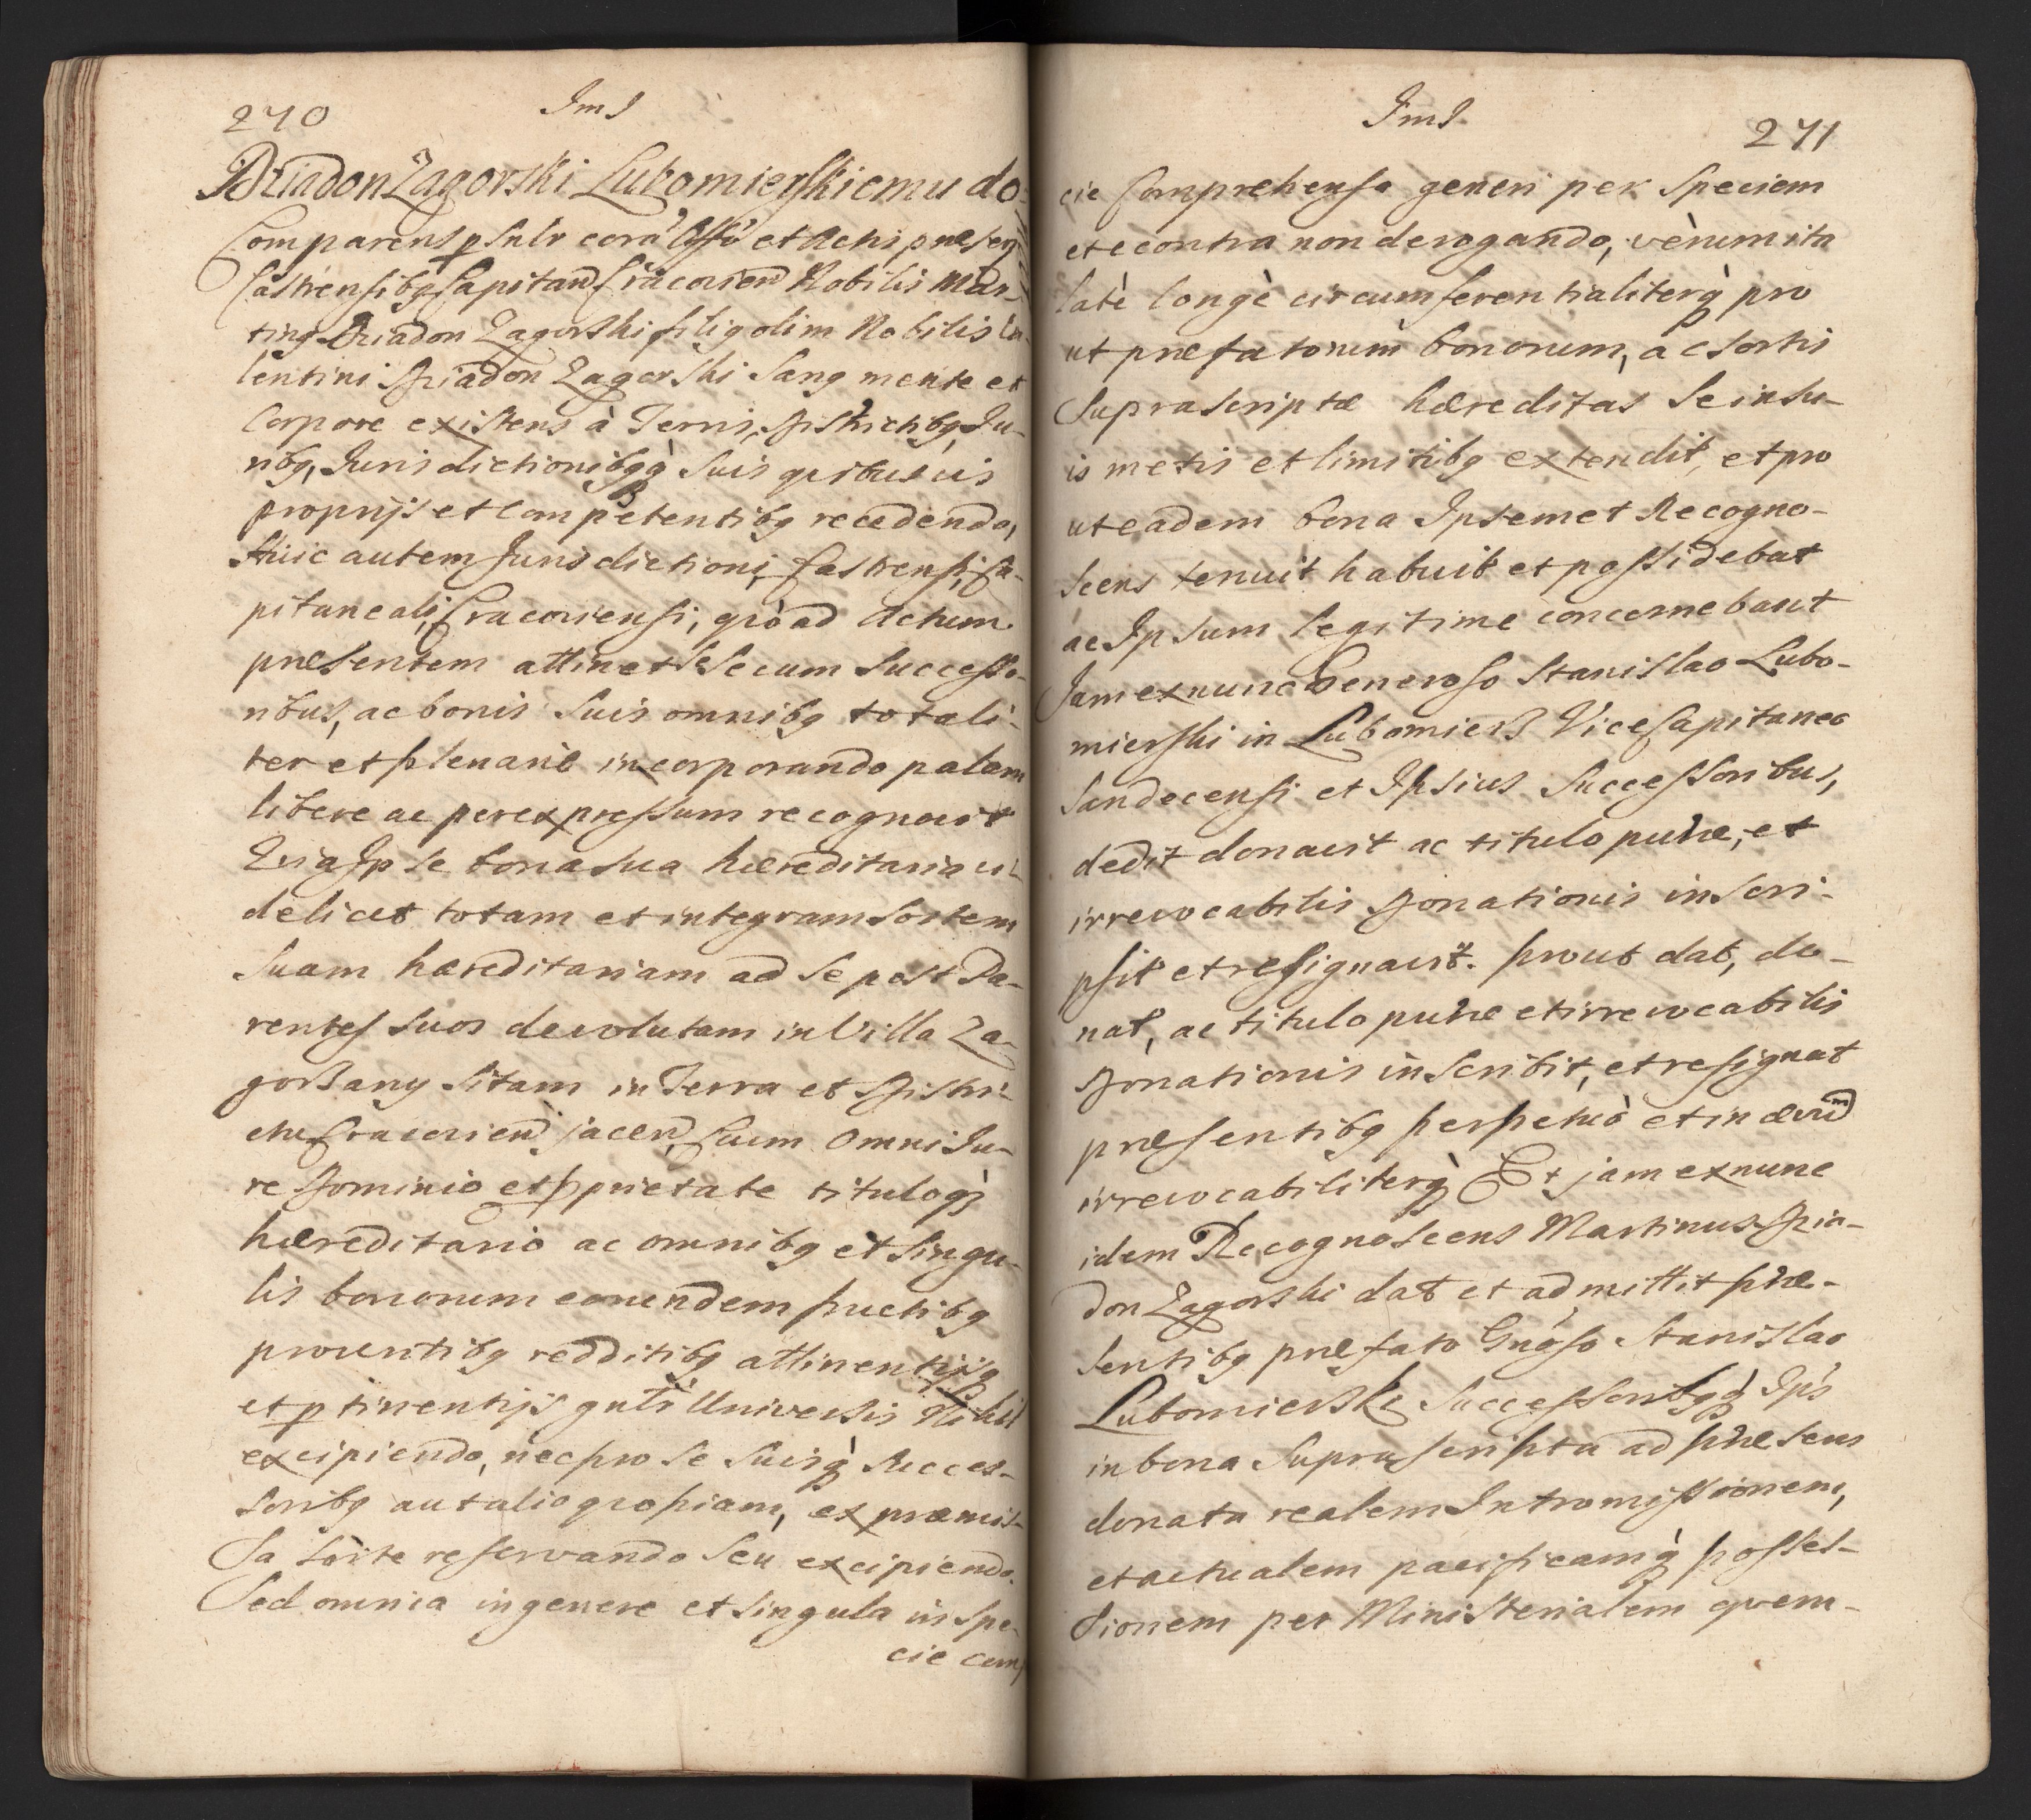 270
ImJ
Dziadon Zagorski Lubomierskiemu do-
Comparens p̱sulr corā Offō et Actis præsen
Castrensibq Capitan Cracovien Nobilis Mar-
tinq Dziadon Zagorski filiq olim Nobilis Va-
lentini Dziadon Zagorski Sanq mente et
Corpore existens à Terris, Districtibq, Ju-
ribq, Jurisdictionibqq̀ Suis quibusvis
proprijs et Competentibq recedendo,
Huic autem Jurisdictioni, Castrensi, Ca-
pitaneali, Cracoviensi, qvò ad Actum
præsentem attinet Se Secum Successo-
ribus, ac bonis Suis omnibq totali-
ter et plenariè incorporando palam
libere ac per expressum recognovit
Quia Ipse bona sua hæreditaria vi-
delicet totam et integram Sortem
Suam hæreditariam ad Se post Pa-
rentes Suos devolutam in Villa Za-
gorzany Sitam in Terra et Distri-
ctu Cracovien jacen, Cum Omni Ju-
re Dominio et pprietate tituloq̀
hæreditario ac omnibq et Singu-
lis bonorum eorundem fructibq
proventibq redditibq attinentijsq
et ptinentijs gnlr Universis Nihil
excipiendo, nec pro Se Suisq̀ Succes-
soribq aut alio qvopiam, ex præmis-
Sa Sorte reservando Seu excipiendo.
Sed omnia in genere et Singula in Spe-
cie com
ImJ
271
cie Comprehensa generi per Speciem
et e contra non derogando, verum ita
latè longè circumferentialiterq̀ pro
ut præfatorum bonorum, ac Sortis
Suprascriptæ hæreditas Se in Su-
is metis et limitibq extendit, et pro
ut eadem bona Ipsemet Recogno-
scens tenuit habuit et possidebat
ac Ipsum legitime concernebant
Jam ex nunc Generoso Stanislao Lubo-
mierski in Lubomierz Vice Capitaneo
Sandecensi et Ipsius Successoribus,
dedit donavit ac titulo puræ, et
irrevocabilis Donationis inscri-
psit et resignavit. prout dat, do-
nat, ac titulo puræ et irrevocabilis
Donationis inscribit, et resignat
præsentibq perpetuò et in ævum
irrevocabiliterq̀ Et jam ex nunc
idem Recognoscens Martinus Dzia-
don Zagorski dat et admittit præ-
sentibq præfato Gnoso Stanislao
Lubomierski Successoribqq̀ Ips
in bona Suprascripta ad præsens
donata realem Intromissionem,
et actualem pacificamq̀ posses-
Sionem per Ministerialem qvem-